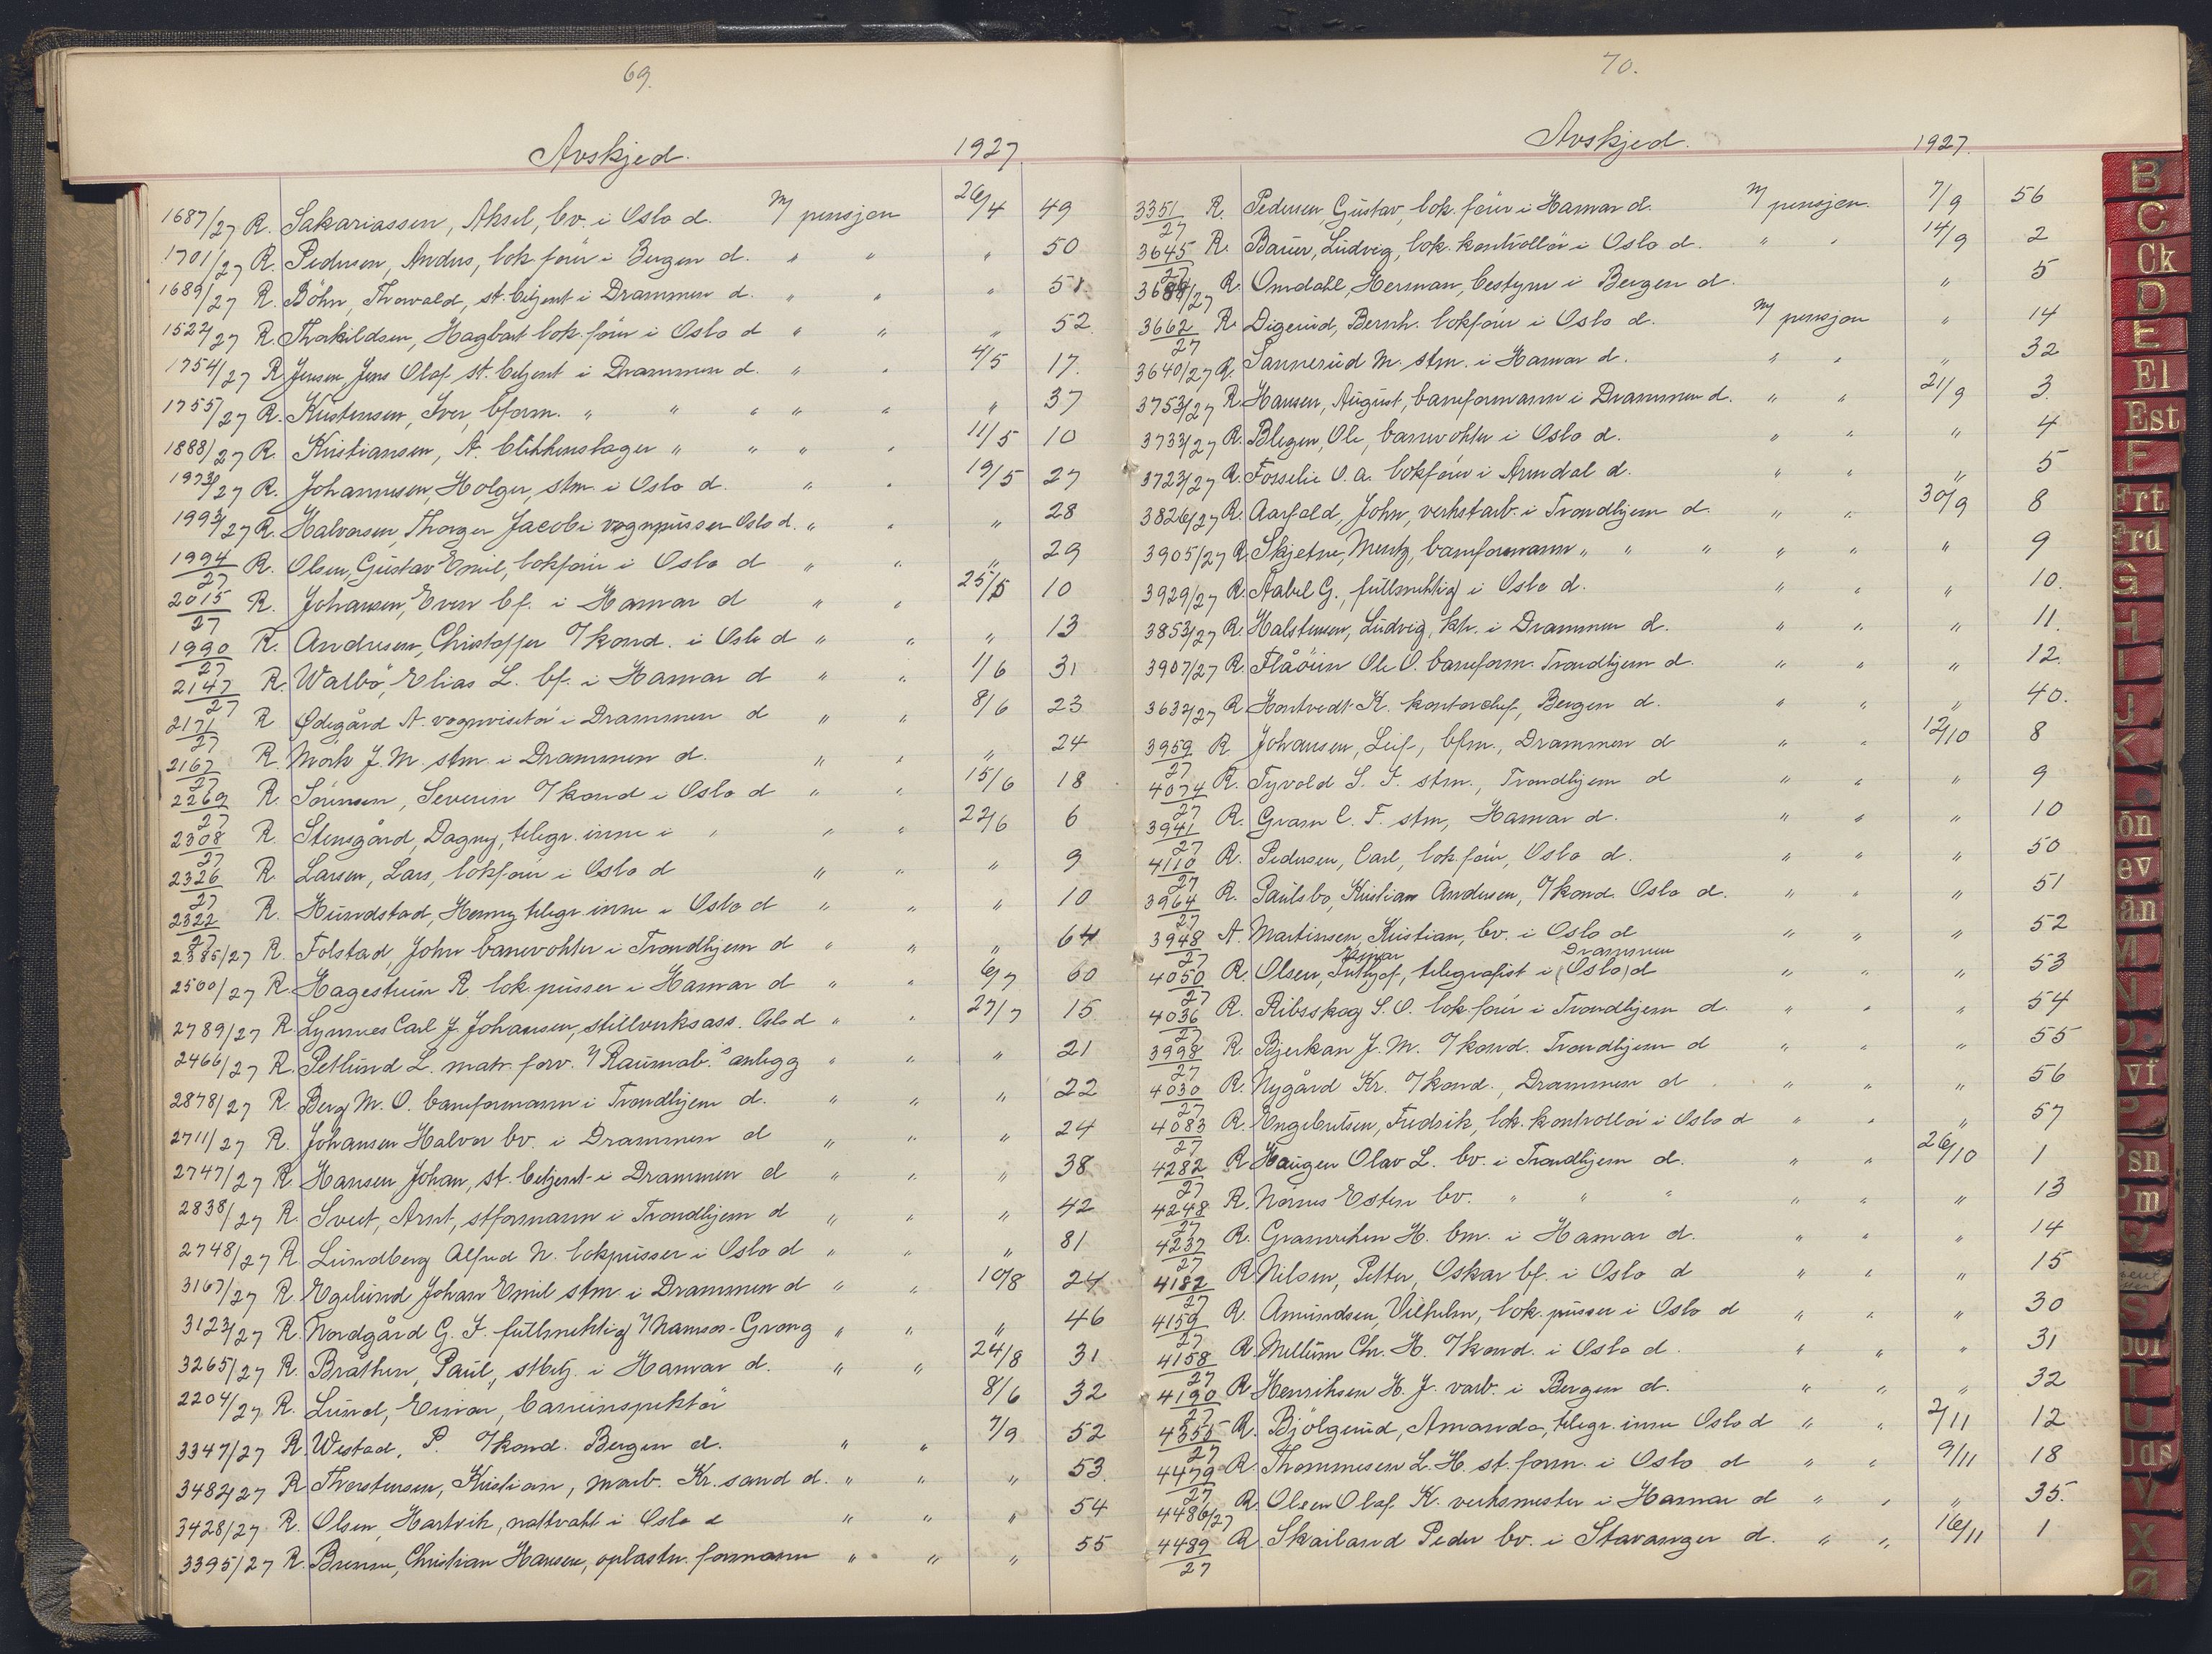 69.
Avskjed. 1927
1687/27 R. Sakariassen, Aksel, bv. i Oslo d. m/ pensjon 26/4 49
1701/27 R. Pedersen, Anders, lok.förer i Bergen d. " " " 50
1689/27 R. Böhn, Thorvald, st.betjent i Drammen d. " " " 51
1522/27 R. Thorkildsen, Hagbart lok.förer i Oslo d " " " 52
1754/27 R. Jensen, Jens Olaf st.betjent i Drammen d. " " 4/5 17.
1755/27 R. Kristensen, Iver, bform. " " " " " " 37
1888/27 R. Kristiansen, A. blikkenslager " " " " 11/5 10
1973/27 R. Johannesen, Holger, stm. i Oslo d. " " 19/5 27
1993/27 R. Halvorsen, Thorger Jacob i vognpusser Oslo d. " " " 28
1994/27 R. Olsen, Gustav Emil, lokförer i Oslo d " " " 29
2015/27 R. Johansen, Even bf. i Hamar d " " 25/5 10
1990/27 R. Andresen, Christoffer o/kond. i Oslo d " " " 13
2147/27 R. Walbö, Elias L. bf. i Hamar d " " 1/6 31
2171/27 R Ødegård A. vognvisitör i Drammen d " " 8/6 23
2167/27 R. Mørk J. M. stm. i Drammen d. " " " 24
2269/27 R. Sörensen, Severin o/kond i Oslo d " " 15/6 18
2308/27 R. Stensgård, Dagny, telegr.inne i " " " 22/6 6
2326/27 R. Larsen, Lars, lokförer i Oslo d " " " 9
2322/27 R. Hundstad, Henny telegr.inne i Oslo d " " " 10
2385/27 R. Folstad, John banevokter i Trondhjem d " " " 64
2500/27 R. Hagestuen R. lok.pusser i Hamar d " " 6/7 60
2789/27 R. Lynnes Carl J. Johansen, stillverksass. Oslo d " " 27/7 15
2466/27 R. Petlund L. matr.forv. v/ Raumab.s anlegg " " " 21
2878/27 R. Berg M. O. baneformann i Trondhjem d. " " " 22
2711/27 R. Johansen Halvor bv. i Drammen d " " " 24
2747/27 R. Hansen Johan, st.betjent i Drammen d " " " 38
2838/27 R. Sveet, Arnt, stformann i Trondhjem d " " " 42
2748/27 R. Lundberg Alfred N. lokpusser i Oslo d " " " 81
3167/27 R. Egelund Johan Emil stm. i Drammen d " " 10/8 24
3123/27 R. Nordgård G. F. fullmektig v/ Namsos-Grong " " " 46
3265/27 R. Bråthen, Paul, stbtj. i Hamar d. " " 24/8 31
2204/27 R. Lund, Einar, baneinspektör 8/6 32
3347/27 R. Westad, P. o/kond. Bergen d. " " 7/9 52
3482/27 R. Thorstensen, Kristian, marb. Kr.sand d. " " " 53.
3428/27 R. Olsen, Hartvik, nattvakt i Oslo d " " " 54
3395/27 R. Brenne, Christian Hansen, oplastn.formann " " " 55
70.
Avskjed. 1927.
3351/27 R. Pedersen, Gustav, lok.förer i Hamar d. m/ pensjon. 7/9 56
3645/27 R. Bauer, Ludvig, lok.kontrollör i Oslo d. " " 14/9 2
3684/27 R. Omdahl, Herman, bestyrer i Bergen d. " 5
3662/27 R. Digerud, Bernh. lokförer i Oslo d. m/ pensjon " 14
3640/27 R. Sannerud M. stm. i Hamar d. " " " 32
3753/27 R. Hansen, August, baneformann i Drammen d. " " 21/9 3.
3733/27 R. Blegen, Ole, banevokter i Oslo d. " " " 4
3723/27 R. Fosselie O. A. lokförer i Arendal d. " " " 5
3826/27 R. Aarfald, John, verkstarb. i Trondhjem d. " " 30/9 8
3905/27 R. Skjetne, Mentz, baneformann " " " " " " 9
3929/27 R. Aabel G., fullmektig i Oslo d. " " " 10.
3853/27 R. Halstensen, Ludvig, ktr. i Drammen d. " " " 11.
3907/27 R. Flåöien Ole O. baneform. Trondhjem d. " " " 12.
3632/27 R. Hontvedt K. kontorchef, Bergen d. " " " 40.
3959/27 R. Johansen, Leif, bfm., Drammen d " " 12/10 8
4074/27 R. Tyvold S. J. stm., Trondhjem d " " " 9
3941/27 R. Gram C. F. stm, Hamar d. " " " 10
4110/27 R. Pedersen, Carl, lok.förer, Oslo d. " " " 50
3964/27 R. Paulsbo, Kristian Andersen, o/kond. Oslo d. " " " 51
3948/27 A. Martinsen, Kristian, bv. i Oslo d " " " 52
Drammen
4050/27 R. Olsen, Fritjof, telegrafist i (Oslo) d " " " 53
4036/27 R. Ribsskog S. O. lok.förer i Trondhjem d. " " " 54
3998/27 R. Bjerkan J. M. o/kond. Trondhjem d " " " 55
4030/27 R. Nygård Kr. o/kond., Drammen d " " " 56
4083/27 R. Engebretsen, Fredrik, lok.kontrollör i Oslo d " " " 57
4282/27 R. Haugen Olav L. bv. i Trondhjem d. " " 26/10 1
4248/27 R. Nörnes Esten bv. " " " " " " 13
4237/27 R. Gramrihen H. bm. i Hamar d. " " " 14
4182/27 R. Nilsen, Petter, Oskar bf. i Oslo d " " " 15
4159/27 R. Amundsen, Vilhelm, lok.pusser i Oslo d " " " 30
4158/27 R. Mellum Chr. H. o/kond. i Oslo d. " " " 31
4190/27 R. Henriksen H. J. varb. i Bergen d. " " " 32
4355/27 R. Bjölgerud, Amanda, telegr.inne Oslo d " " 2/11 12
4479/27 R. Thommesen L. H. st.form. i Oslo d " " 9/11 18
4486/27 R. Olsen Olaf K. verksmester i Hamar d " " " 35.
4489/27 R. Skailand Peder bv. i Stavanger d. " " 16/11 1
B
C
Ck
D
E
El
Est
F
Frt
Frd
G
H
I
J
K
ön
ev
ån
M
N
O
vf
P
Psn
Pm
Q
S
bor
T
U
Uds
V
X
Ø